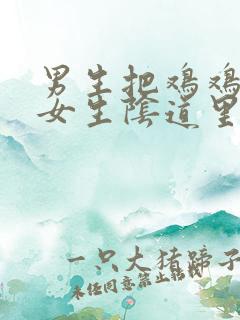 男生把鸡鸡
女生陰道里
一只大猪蹄子
未经同意禁止转载